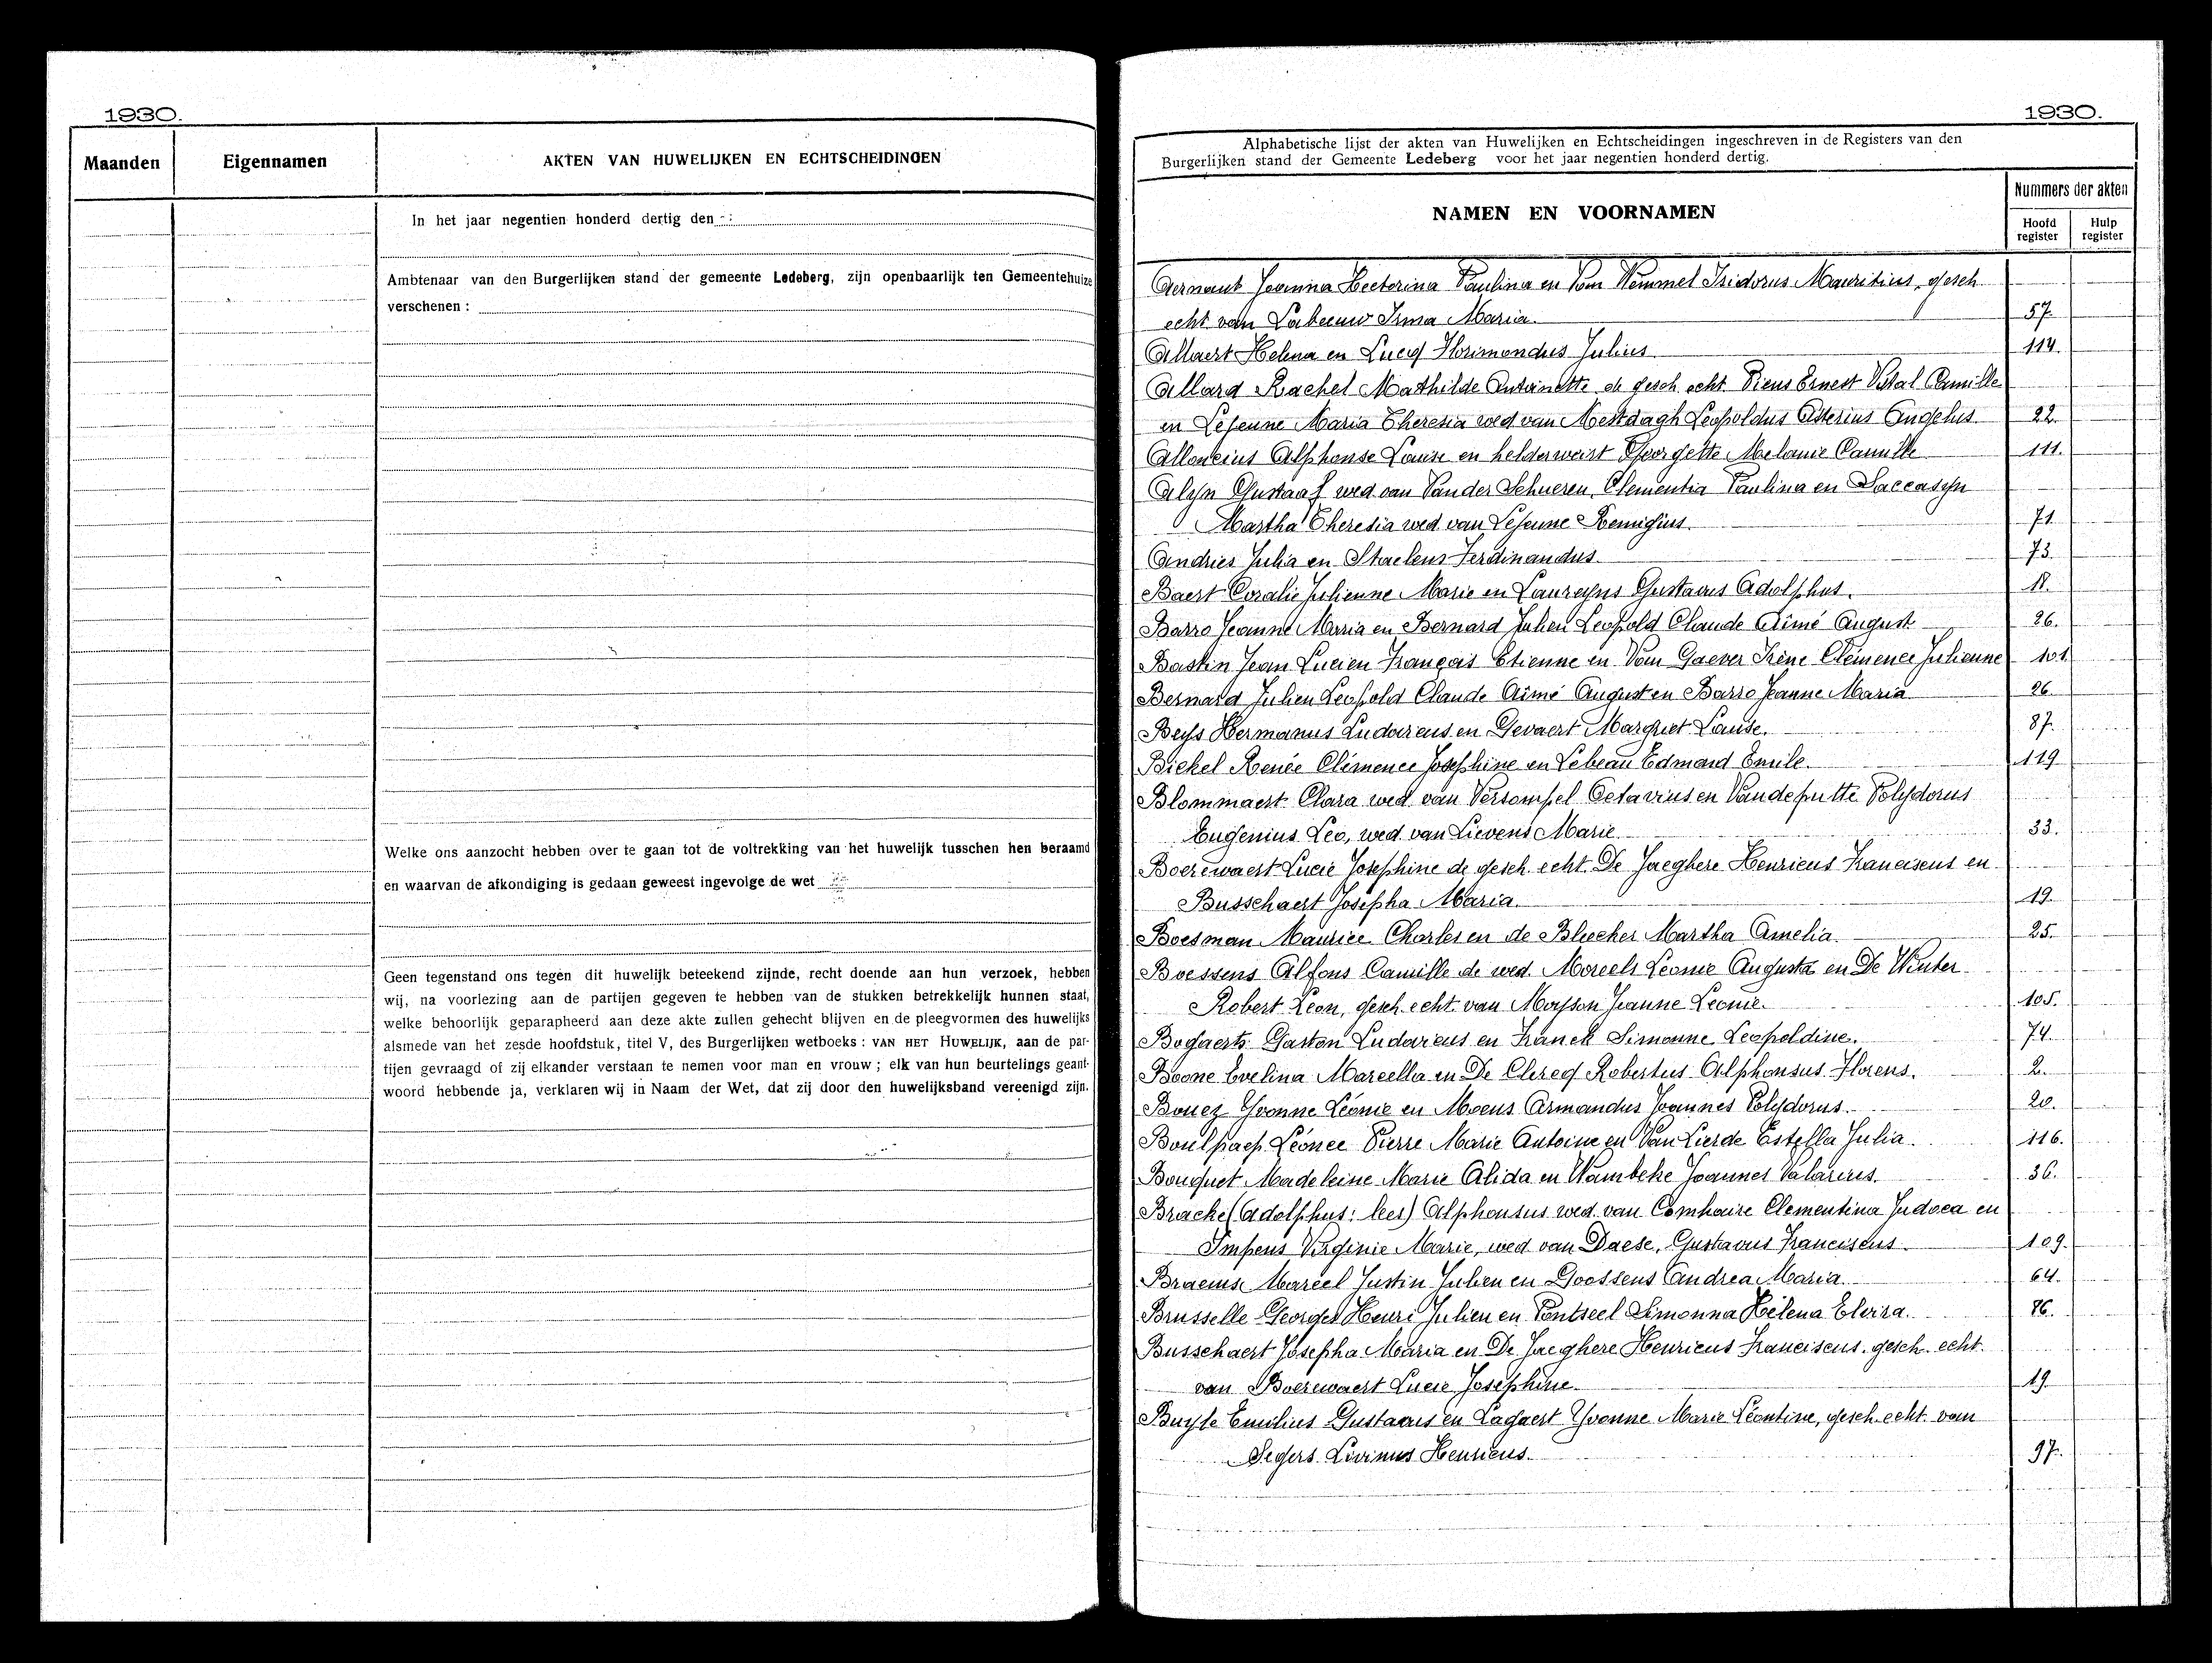 1930.
Maanden
Eigennamen
AKTEN VAN HUWELIJKEN EN ECHTSCHEIDINGEN
In het jaar negentien honderd dertig den
Ambtenaar van den Burgerlijken stand der gemeente Ledeberg, zijn openbaarlijk ten Gemeentehuize
verschenen :
Welke ons aanzocht hebben over te gaan tot de voltrekking van het huwelijk tusschen hen beraamd
en waarvan de afkondiging is gedaan geweest ingevolge de wet
Geen tegenstand ons tegen dit huwelijk beteekend zijnde, recht doende aan hun verzoek, hebben
wij, na voorlezing aan de partijen gegeven te hebben van de stukken betrekkelijk hunnen staat,
welke behoorlijk geparapheerd aan deze akte zullen gehecht blijven en de pleegvormen des huwelijks
alsmede van het zesde hoofdstuk, titel V, des Burgerlijken wetboeks : VAN HET HUWELIJK, aan de par-
tijen gevraagd of zij elkander verstaan te nemen voor man en vrouw ; elk van hun beurtelings geant-
woord hebbende ja, verklaren wij in Naam der Wet, dat zij door den huwelijksband vereenigd zijn.
1930.
Alphabetische lijst der akten van Huwelijken en Echtscheidingen ingeschreven in de Registers van den
Burgerlijken stand der Gemeente Ledeberg voor het jaar negentien honderd dertig.
NAMEN EN VOORNAMEN
Nummers der akten
Hoofd register
Hulp register
Aernaut Joanna Hectorina Paulina en Van Wemmel Isidorus Mauritius, gesch
echt van Labeeuw Irma Maria. 57.
Allaert Helena en Lucq Florimondus Julius 114.
Allard Rachel Mathilde Antoinette de gesch. echt. Piens Ernest Vital Camille
en Lejeune Maria Theresia wed van Mestdagh Leopoldus Asterius Angelus 22.
Alloncius Alphonse Louise en helderweirt Georgette Melanie Camille 111.
Alyn Gustaaf wed van Van der Schueren, Clementia Paulina en Saccasyn
Martha Theresia wed. van Lejeune Remigius. 71.
Andries Julia en Staelens Ferdinandus. 73.
Baert Coralie Julienne Marie en Laureyns Gustavus Adolphus. 18.
Barro Jeanne Maria en Bernard Julien Leopold Claude Aimé August 26.
Bastin Jean Lucien François Etienne en Van Gaever Irène Clémence Julienne 101
Bernard Julien Leopold Claude Aimé August en Barro Jeanne Maria 26
Beys Hermanus Ludovicus en Gevaert Margriet Louise. 87.
Bickel Renée Clémence Josephine en Lebeau Edmond Emile. 119
Blommaert Clara wed. van Versompel Octavius en Vandeputte Polydorus
Eugenius Leo, wed. van Lievens Marie 33.
Boerewaert Lucie Josephine de gesch. echt. De Jaeghere Henricus Franciscus en
Busschaert Josepha Maria. 19.
Boesman Maurice Charles en de Bleecker Martha Amelia. 25.
Boessens Alfons Camille de wed. Moreels Leonie Augusta en De Winter
Robert Leon, gesch. echt. van Moyson Jeanne Leonie. 105.
Bogaerts Gaston Ludovicus en Franck Simonne Leopoldine. 74.
Boone Evelina Marcella en De Clercq Robertus Alphonsus Florens. 2.
Bouez Yvonne Léonie en Moens Armandus Joannes Polydorus. 20.
Boulpaep Léonce Pierre Marie Antoine en Van Lierde Estella Julia. 116.
Bouquet Madeleine Marie Alida en Wambeke Joannes Valarius. 36.
Bracke (Adolphus: lees) Alphonsus wed. van Comhaire Clementina Judoca en
Impens Virginie Marie, wed van Daese, Gustavus Franciscus. 109.
Braems Marcel Justin Julien en Goossens Andrea Maria. 64.
Brusselle Georges Henri Julien en Pontseel Simonna Hélena Elvira. 86.
Busschaert Josepha Maria en De Jaeghere Henricus Franciscus. gesch. echt.
van Boerewaert Lucie Josephine. 19.
Buyle Emilius Gustavus en Lagaert Yvonne Marie Léontine, gesch. echt. van
Segers Livinus Henricus. 97.